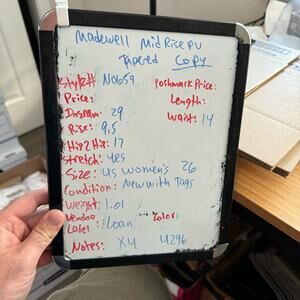 Madewell Mid Rise PU
Tapered Copy
Style# N0659 Poshmark Price:
Price: Length:
Inseam: 29 Waist: 14
Rise: 9.5
Hip 2 Hip: 17
Stretch: yes
Size: US Women's 26
Condition: New with Tags
Weight: 1.01
Vendoo Label: Loan Color:
Notes: X4 4296